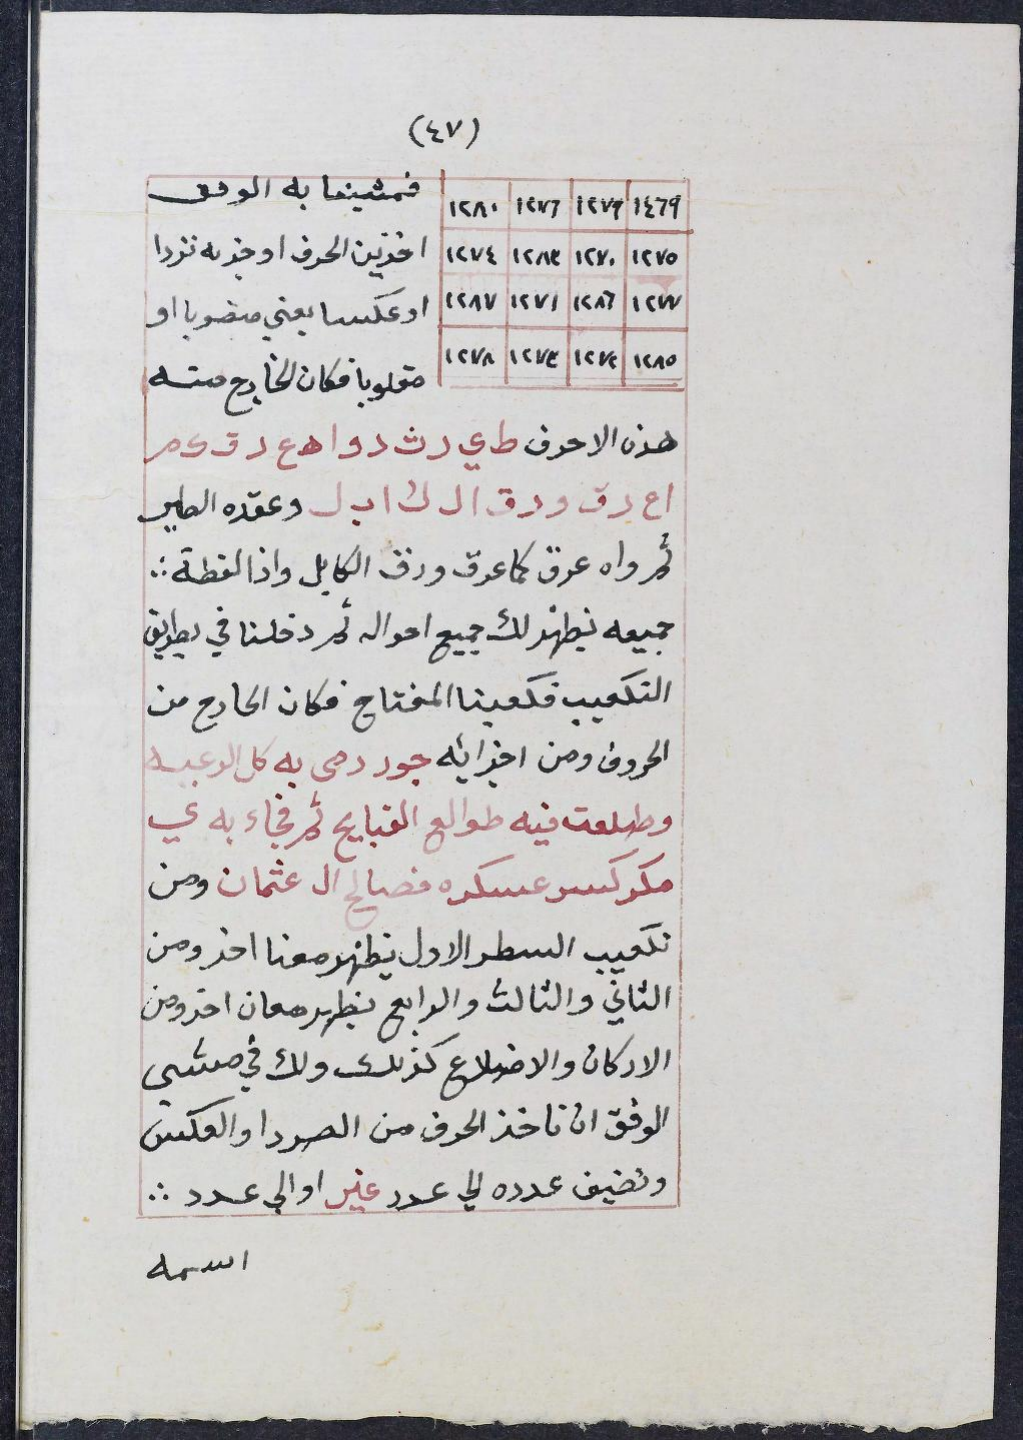 (٤٧)
١٤٦٩ ١٢٧٩ ١٢٧٦ ١٢٨٠
١٢٧٥ ١٢٧٠ ١٢٨٣ ١٢٧٤
١٢٧٧ ١٢٨٦ ١٢٧١ ١٢٨٧
١٢٨٥ ١٢٧٢ ١٢٧٣ ١٢٧٨
فمشينا به الوفق
الحرف او
او عكسا يعني منصوبا او
مقلوبا فكان الخارج منه
هذه الاحرف ط ي ر ث د و ا ه ع د ق
ا ع د ق و د ق ا ل ك ا ب ل وعقده
ثم واه عرق كما عرق ورق الكابل واذا لفظة ∴
جميعه يظهر لك جميع احواله ثم دخلنا في بطريق
التكعيب فكعبنا المفتاح فكان الخارج من
الحروف ومن اجزائه جور رمى به كل الرعيه
وطلعت فيه طوالع القبايح ثم فجاء به ي
مكر كسر عسكره فصالح ال عثمان ومن
تكعيب السطر الاول يظهر معنا اخر ومن
الثاني والثالث والرابع يظهر معان اخر ومن
الاركان والاضلاع كذلك ولك في مشي
الوفق ان تاخذ الحرف من الصردا والعكس
وتضيف عدده لي عدد غير او الي عدد ∴
اسمه